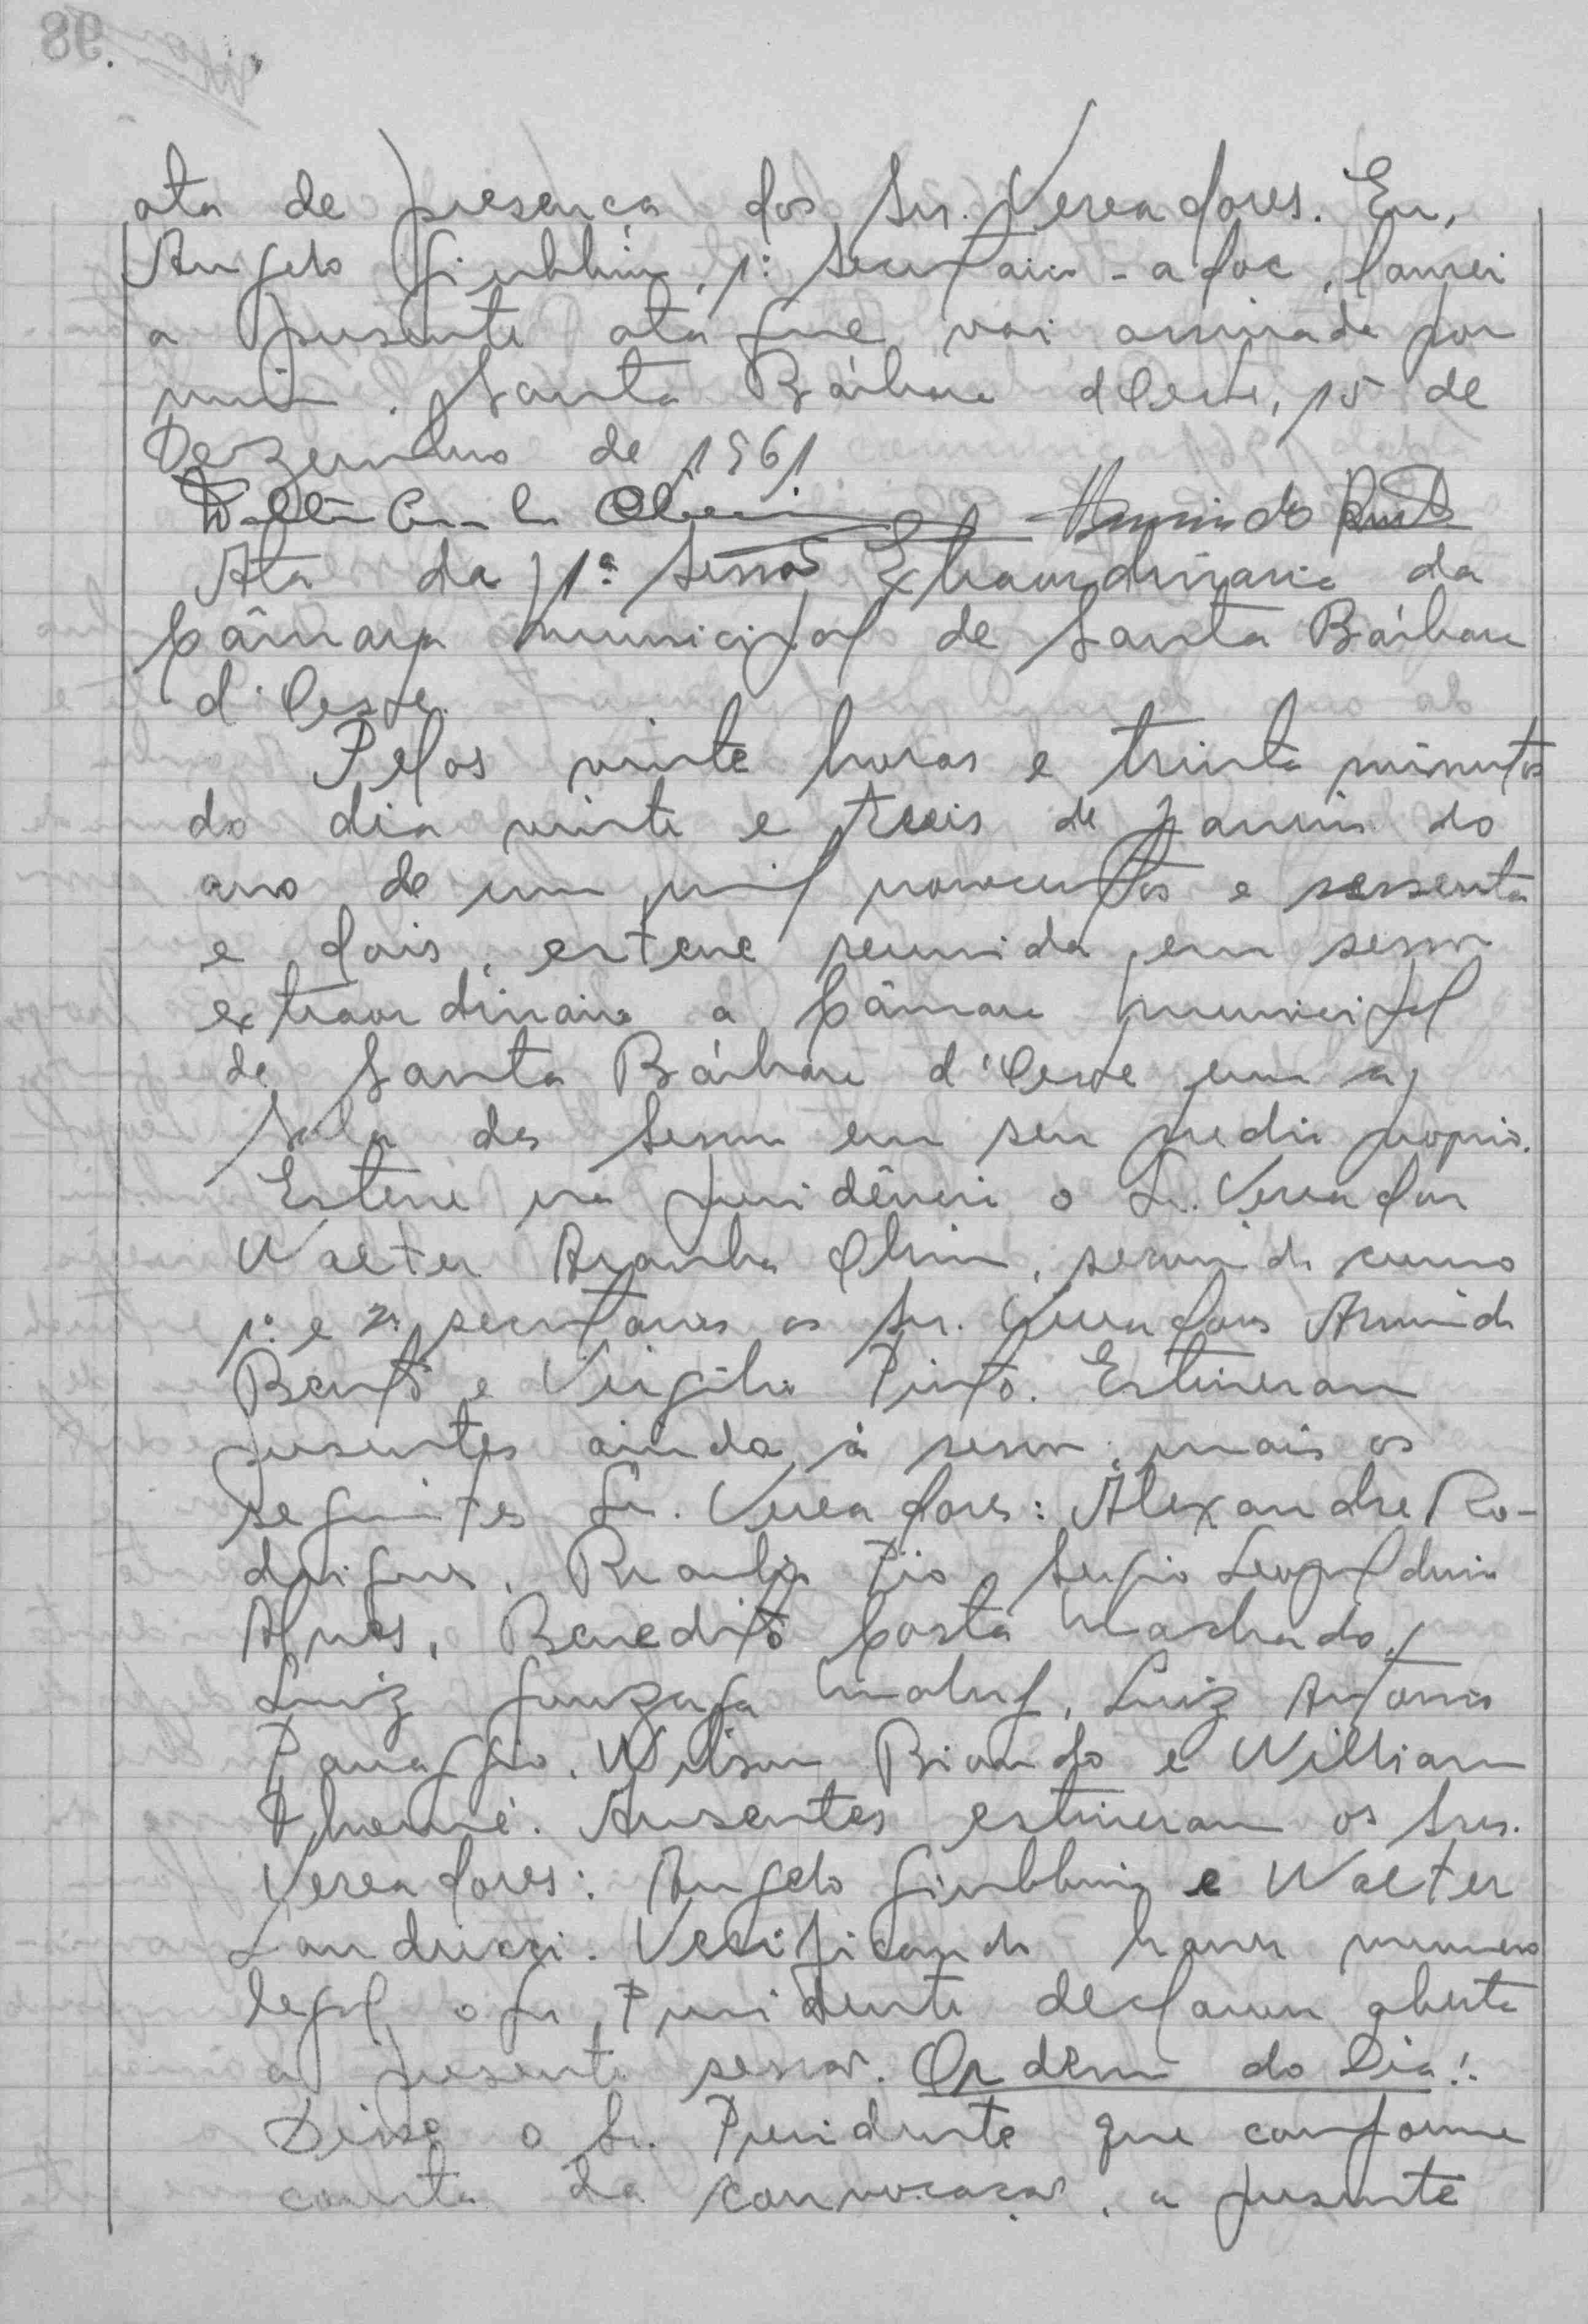 ata de presença dos Srs. Vereadores. Eu,
Angelo Giubbina, 1º Secretario - adoc, lavrei
a presente ata que vai assinada por
mim. Santa Bárbara d'Oeste, 15 de
Dezembro de 1961
Ata da 1ª Sessão Extraordinaria da
Câmara Municipal de Santa Bárbara
d'Oeste.
Pelas vinte horas e trinta minutos
do dia vinte e treis de Janeiro do
ano de um mil novecentos e sessenta
e dois, esteve reunida em sessão
extraordinaria a Câmara Municipal
de Santa Bárbara d'Oeste em a
Sala das Sessão em seu predio proprio.
Esteve na presidência o Sr. Vereador
Walter Aranha Oliveira, servindo como
1º e 2º secretarios os Srs. Vereadores Armindo
Bento e Virgilio Pinto. Estiveram
presentes ainda à sessão, mais os
seguintes Sr. Vereadores: Alexandre Ro-
drigues, Braulio Pio, Sergio Leopoldino
Alves, Benedito Costa Machado,
Luiz Gonzaga Maluf, Luiz Antonio
Panaggio, Wilson Biondo e William
Thomé. Ausentes estiveram os Srs.
Vereadores: Angelo Giubbina e Walter
Landucci. Verificando haver numero
legal, o Sr. Presidente declarou aberta
a presente sessão. Ordem do Dia:
Disse o Sr. Presidente que conforme
consta da convocação, a presente